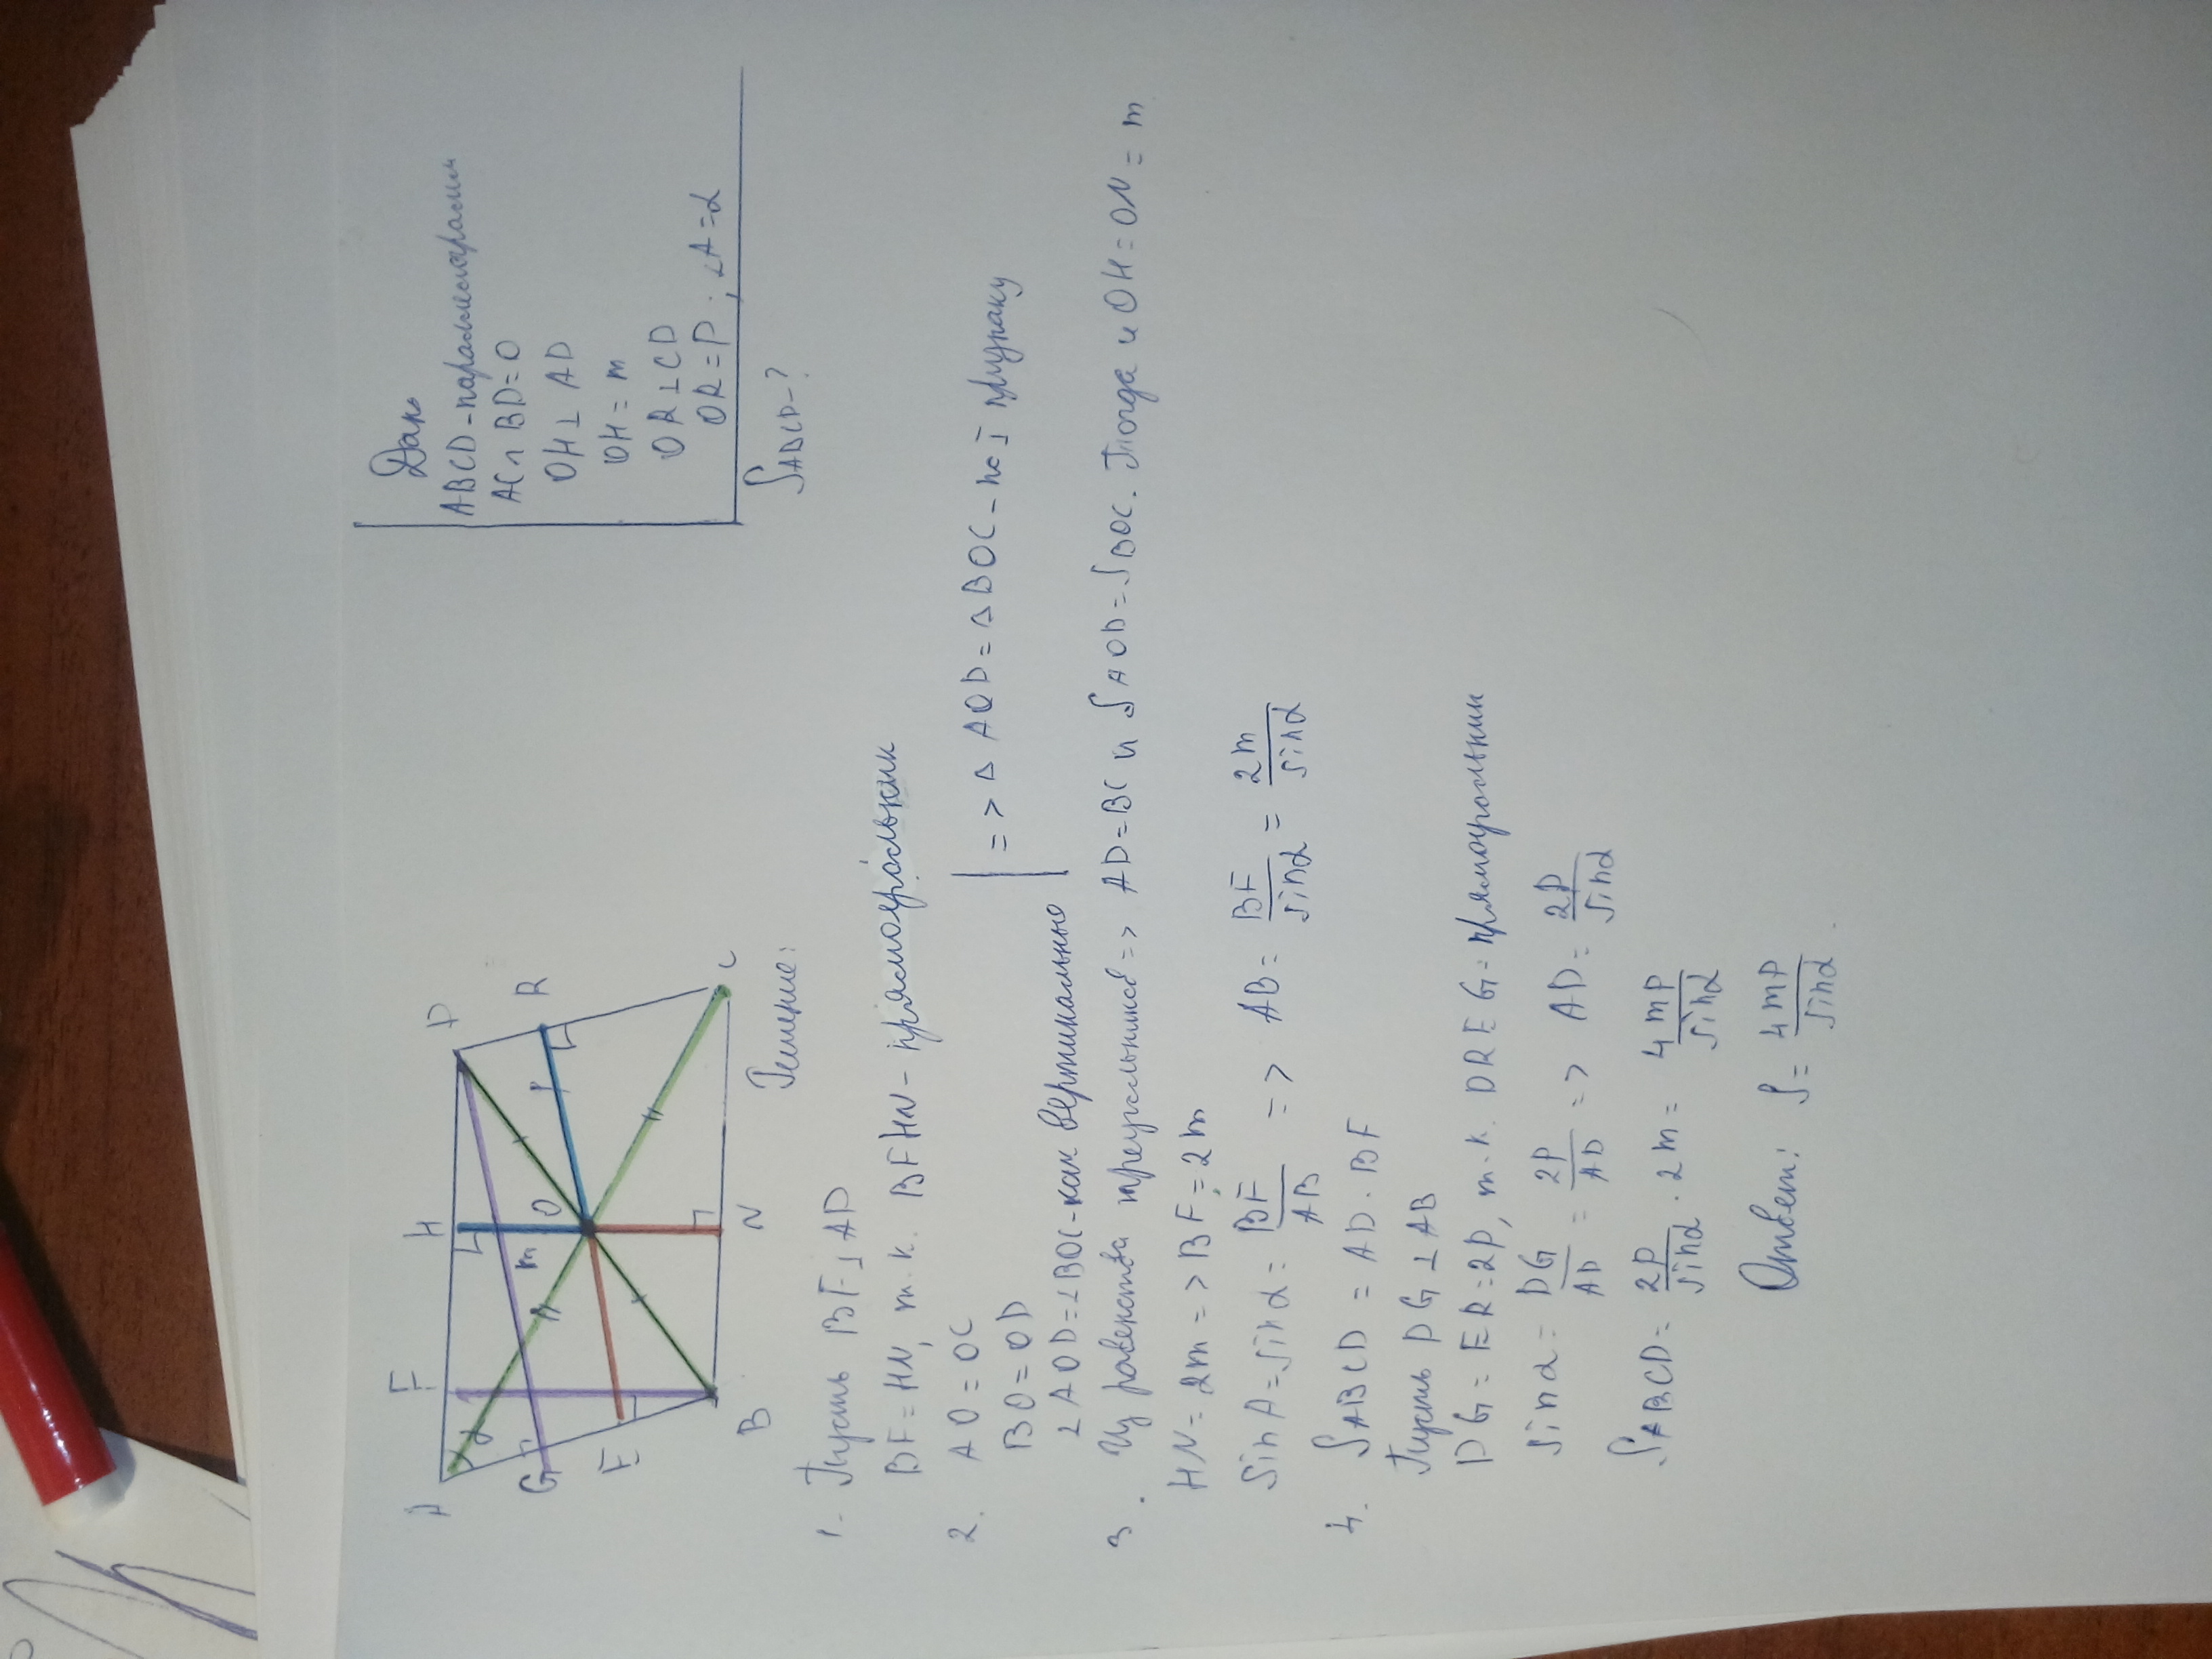 A
F
H
D
m
O
p
R
α
G
E
B
N
C
Дано
ABCD - параллелограмм
AC ∩ BD = O
OH ⊥ AD
OH = m
OR ⊥ CD
OR = P ; ∠A = α
S ABCD - ?
Решение:
1. Пусть BF ⊥ AD
BF = HN, т.к. BFHN - прямоугольник
2. AO = OC
BO = OD
∠AOD = ∠BOC - как вертикальные | => Δ AOD = Δ BOC - по I признаку
3. Из равенства треугольников => AD = BC и S AOD = S BOC. Тогда и OH = ON = m
HN = 2m => BF = 2m
Sin A = sin α = BF/AB => AB = BF/sin α = 2m/sin α
4. S ABCD = AD · BF
Пусть DG ⊥ AB
DG = ER = 2P, т.к. DREG - прямоугольник
sin α = DG/AD = 2P/AD => AD = 2P/sin α
S ABCD = 2P/sin α · 2m = 4mP/sin α
Ответ: S = 4mP/sin α.